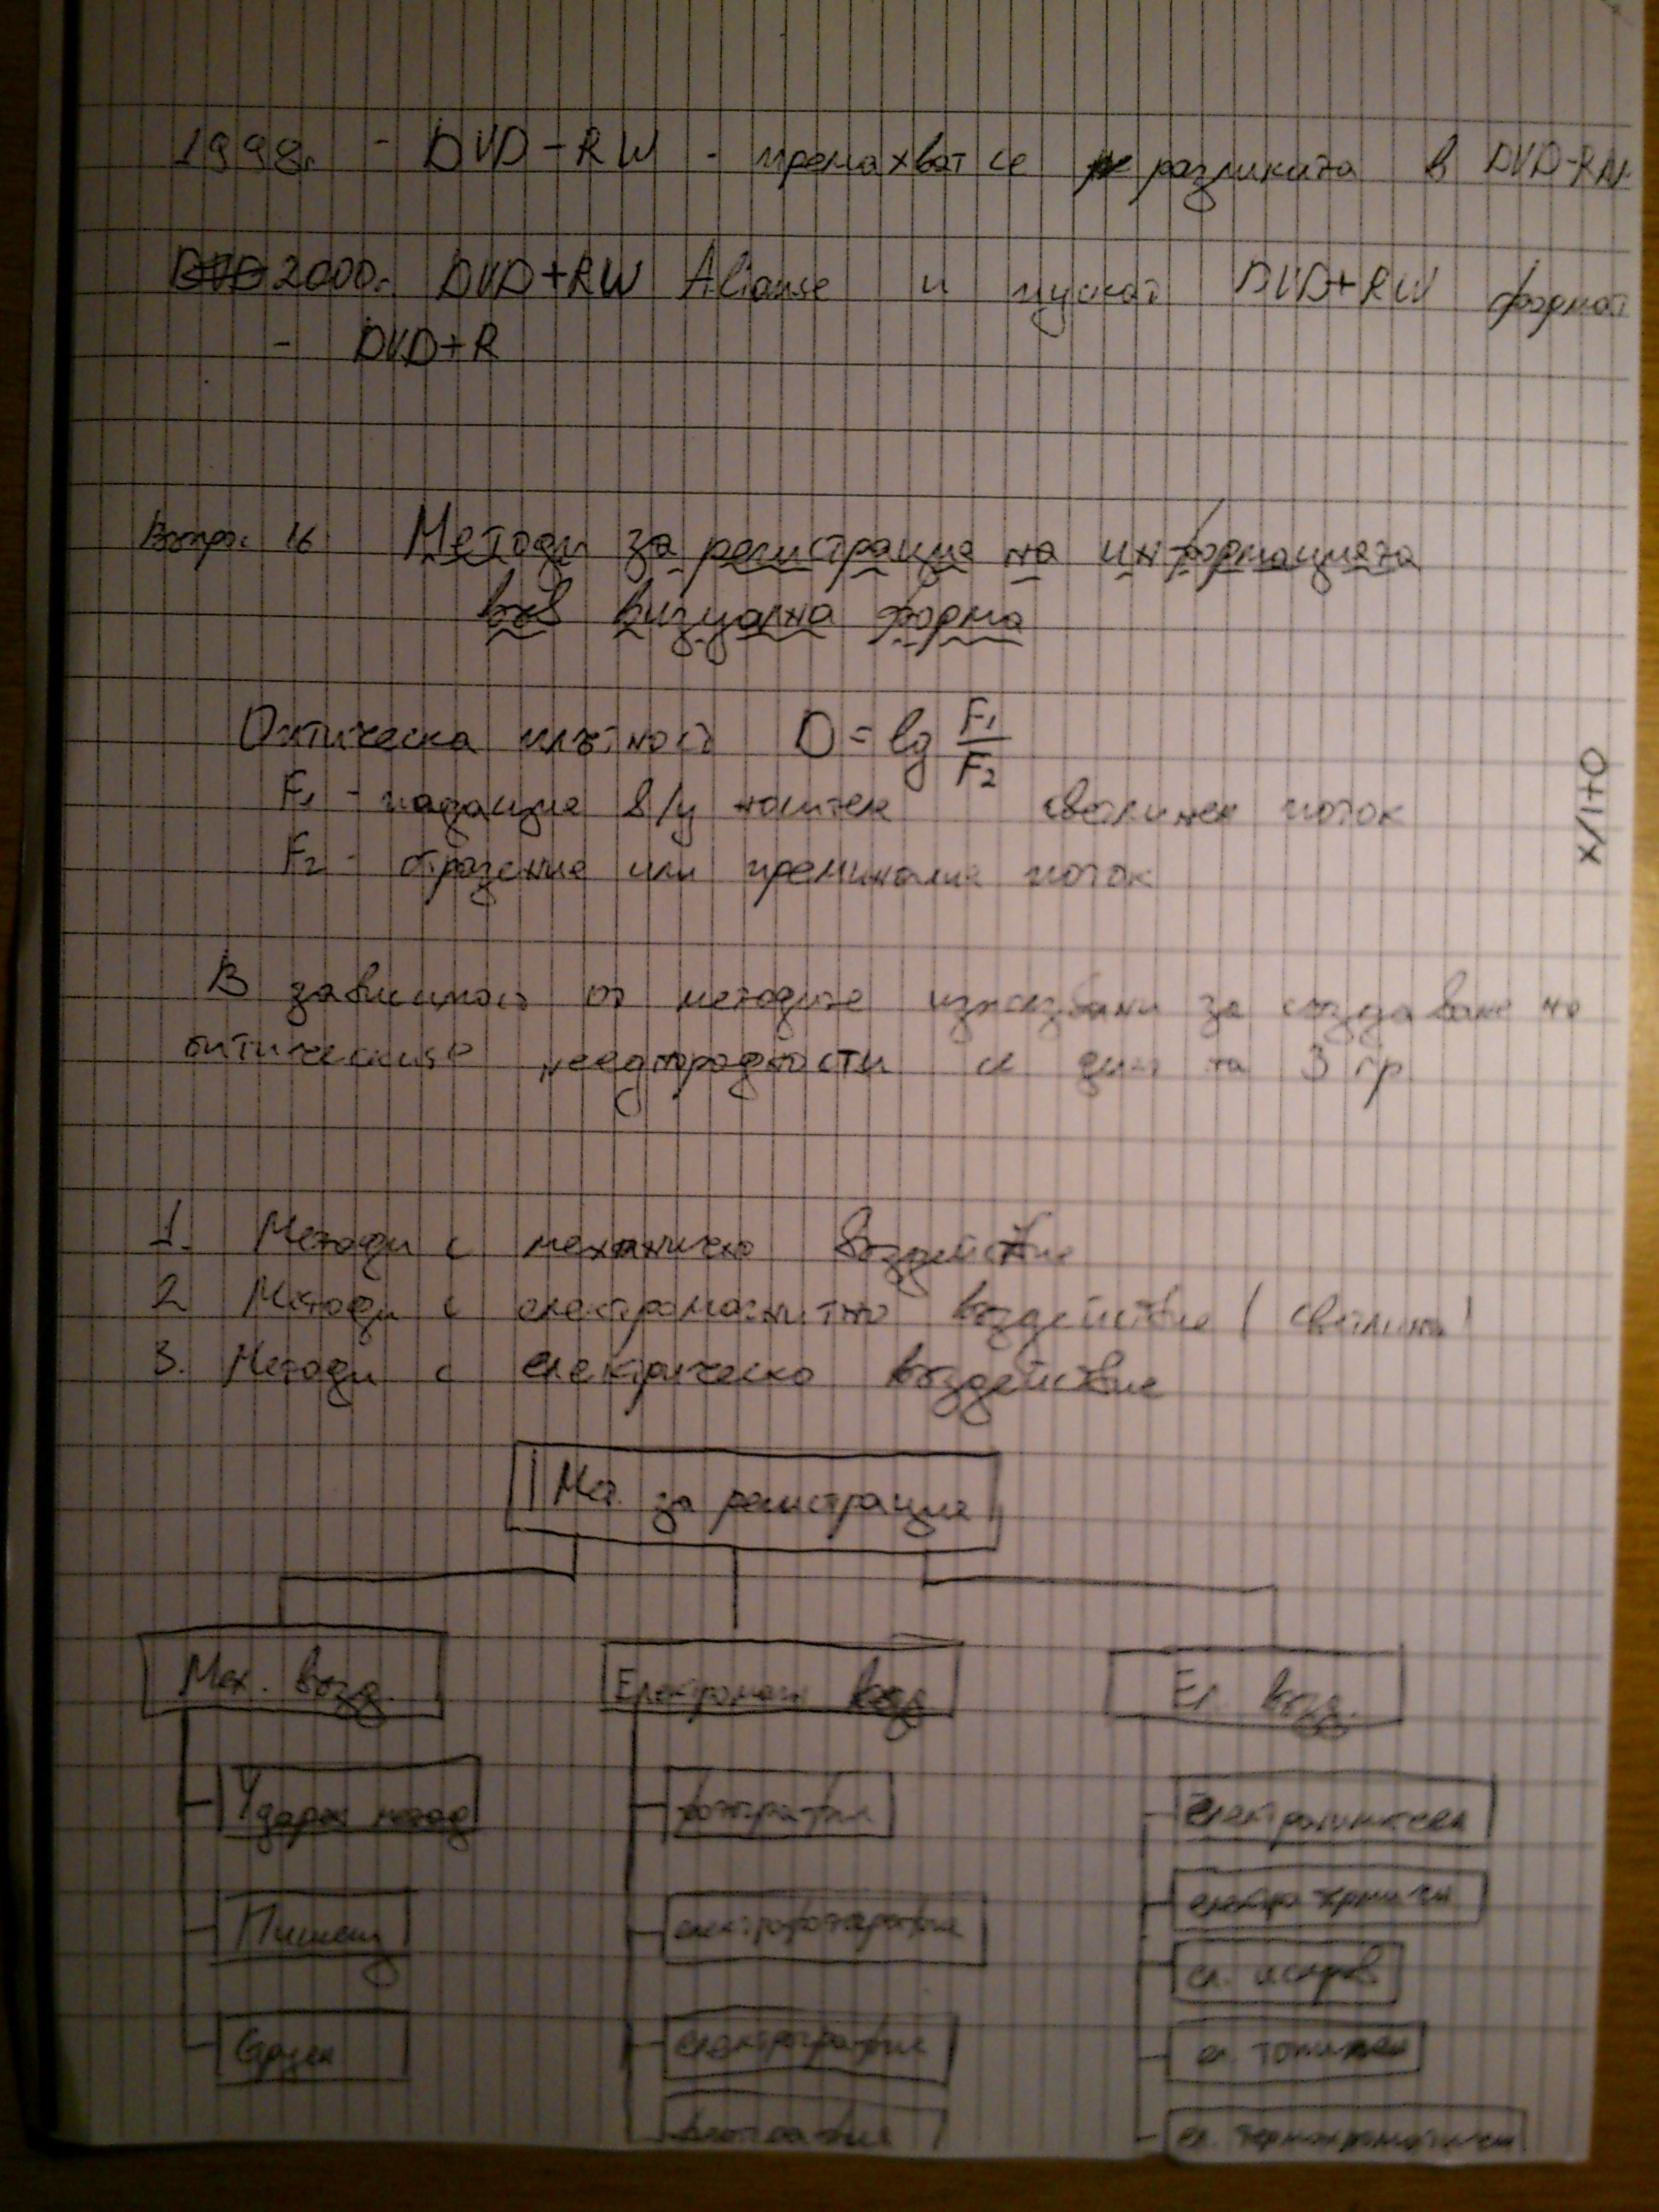 1998г. - DVD-RW - премахват се разликата в DVD-RW
2000г. DVD+RW Alianse и пускат DVD+RW формат
- DVD+R
Въпрос 16 Методи за регистрация на информацията
във визуална форма
Оптическа плътност D = lg F1/F2
F1 - падащия в/у носителя светлинен поток
F2 - отразения или преминалия поток
X/1+0
В зависимост от методите използвани за създаване на
оптическите нееднородности се делят на 3 гр
1. Методи с механично въздействие
2 Методи с електромагнитно въздействие (светлина)
3. Методи с електрическо въздействие
Мет. за регистрация
Мех. възд. Електромагн възд Ел възд.
Ударен метод фотография
Пишещ електрофотография електро химичен
Струен електрография ел. искров